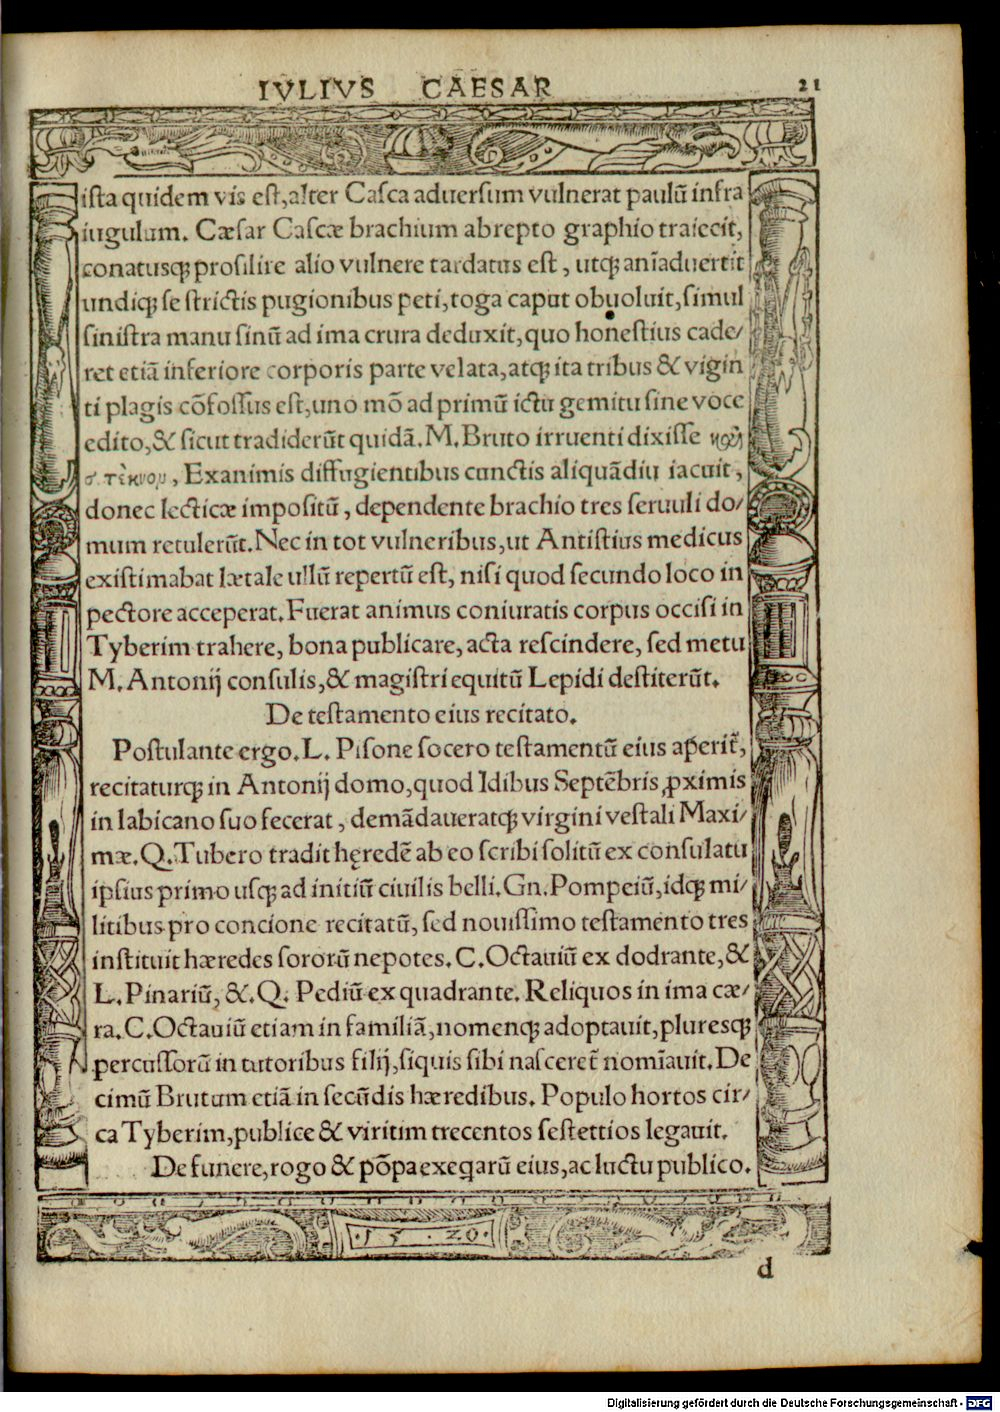 IVLIVS CAESAR 21
ista quidem vis est,alter Casca aduersum vulnerat paulū infra
iugulum. Cæsar Cascæ brachium abrepto graphio traiecit,
conatusqꝫ prosilire alio vulnere tardatus est, utqꝫ anīaduertit
undiqꝫ se strictis pugionibus peti,toga caput obuoluit,simul
sinistra manu sinū ad ima crura deduxit,quo honestius cade/
ret etiā inferiore corporis parte velata,atqꝫ ita tribus & vigin
ti plagis cōfossus est,uno mō ad primū ictu gemitu sine voce
edito,& sicut tradiderūt quidā. M. Bruto irruenti dixisse καὶ
σ. τέκνον, Exanimis diffugientibus cunctis aliquādiu iacuit,
donec lecticæ impositū, dependente brachio tres seruuli do/
mum retulerūt. Nec in tot vulneribus,ut Antistius medicus
existimabat lætale ullū repertū est, nisi quod secundo loco in
pectore acceperat. Fuerat animus coniuratis corpus occisi in
Tyberim trahere, bona publicare, acta rescindere, sed metu
M. Antonij consulis,& magistri equitū Lepidi destiterūt.
De testamento eius recitato.
Postulante ergo. L. Pisone socero testamentū eius aperit̄,
recitaturqꝫ in Antonij domo,quod Idibus Septēbris ꝓximis
in labicano suo fecerat, demādaueratqꝫ virgini vestali Maxi/
mæ. Q. Tubero tradit hęredē ab eo scribi solitū ex consulatu
ipsius primo usqꝫ ad initiū ciuilis belli. Gn. Pompeiū,idqꝫ mi/
litibus pro concione recitatū, sed nouissimo testamento tres
instituit hæredes sororū nepotes. C. Octauiū ex dodrante, &
L. Pinariū, &. Q. Pediū ex quadrante. Reliquos in ima cæ/
ra. C. Octauiū etiam in familiā, nomenqꝫ adoptauit, pluresqꝫ
percussorū in tutoribus filij,siquis sibi nasceret̄ nomīauit. De
cimū Brutum etiā in secūdis hæredibus. Populo hortos cir/
ca Tyberim,publice & viritim trecentos sestettios legauit.
De funere, rogo & pōpa exeq̱arū eius, ac luctu publico.
. 15 . 20 .
d
Digitalisierung gefördert durch die Deutsche Forschungsgemeinschaft - DFG